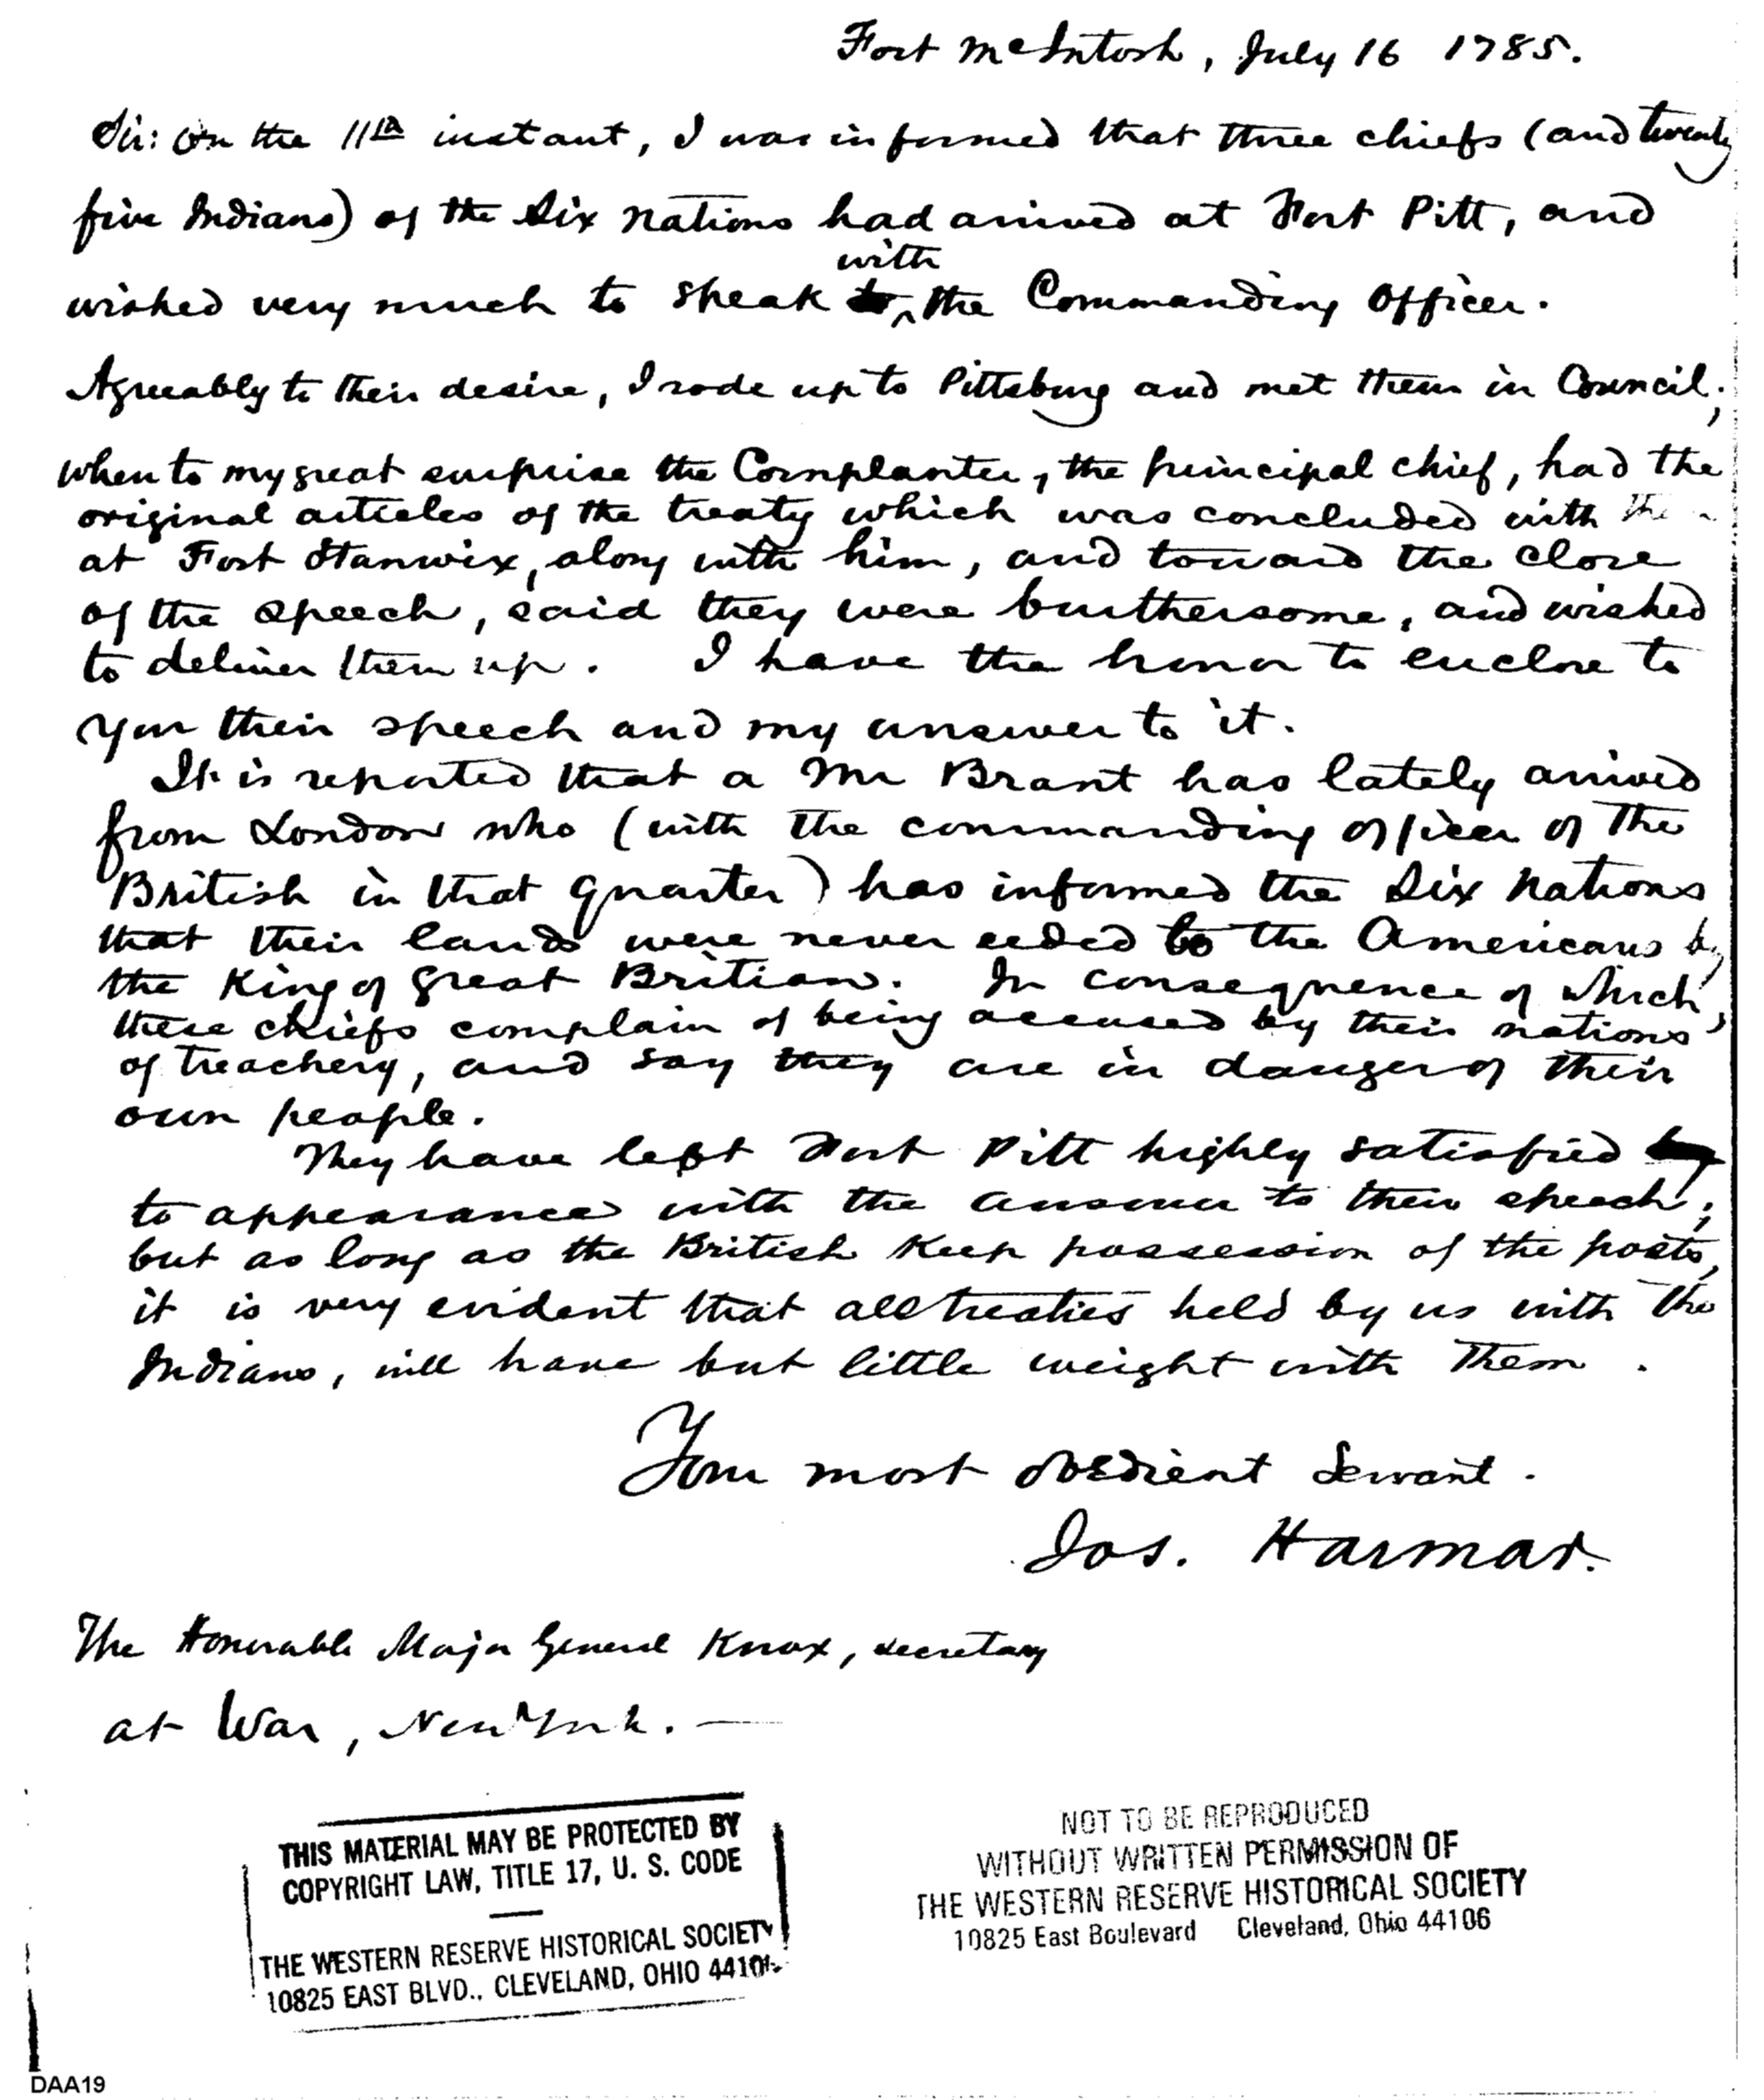 Fort McIntosh, July 16 1785.
Sir: On the 11th instant, I was informed that three chiefs (and twenty
five Indians) of the Six Nations had arrived at Fort Pitt, and
with
wished very much to speak to ^ the Commanding Officer.
Agreeably to their desire, I rode up to Pittsburg and met them in Council;
when to my great surprise the Cornplanter, the principal chief, had the
original articles of the treaty which was concluded with
at Fort Stanwix, along with him, and toward the close
of the speech, said they were burthersome, and wished
to deliver them up. I have the honor to enclose to
you their speech and my answer to it.
It is reported that a Mr Brant has lately arrived
from London who (with the commanding officer of the
British in that quarter) has informed the Six Nations
that their lands were never ceded to the Americans by
the King of Great Britian. In consequence of which,
these chiefs complain of being accused by their nations
of treachery, and say they are in danger of their
own people.
They have left Fort Pitt highly satisfied
to appearance with the answer to their speech;
but as long as the British keep possession of the posts,
it is very evident that all treaties held by us with the
Indians, will have but little weight with them.
Your most obedient Servant.
Jos. Harmar.
The Honorable Major General Knox, secretary
at War, New York. —
THIS MATERIAL MAY BE PROTECTED BY
COPYRIGHT LAW, TITLE 17, U. S. CODE
THE WESTERN RESERVE HISTORICAL SOCIETY
10825 EAST BLVD., CLEVELAND, OHIO 44106
NOT TO BE REPRODUCED
WITHOUT WRITTEN PERMISSION OF
THE WESTERN RESERVE HISTORICAL SOCIETY
10825 East Boulevard Cleveland, Ohio 44106
DAA19